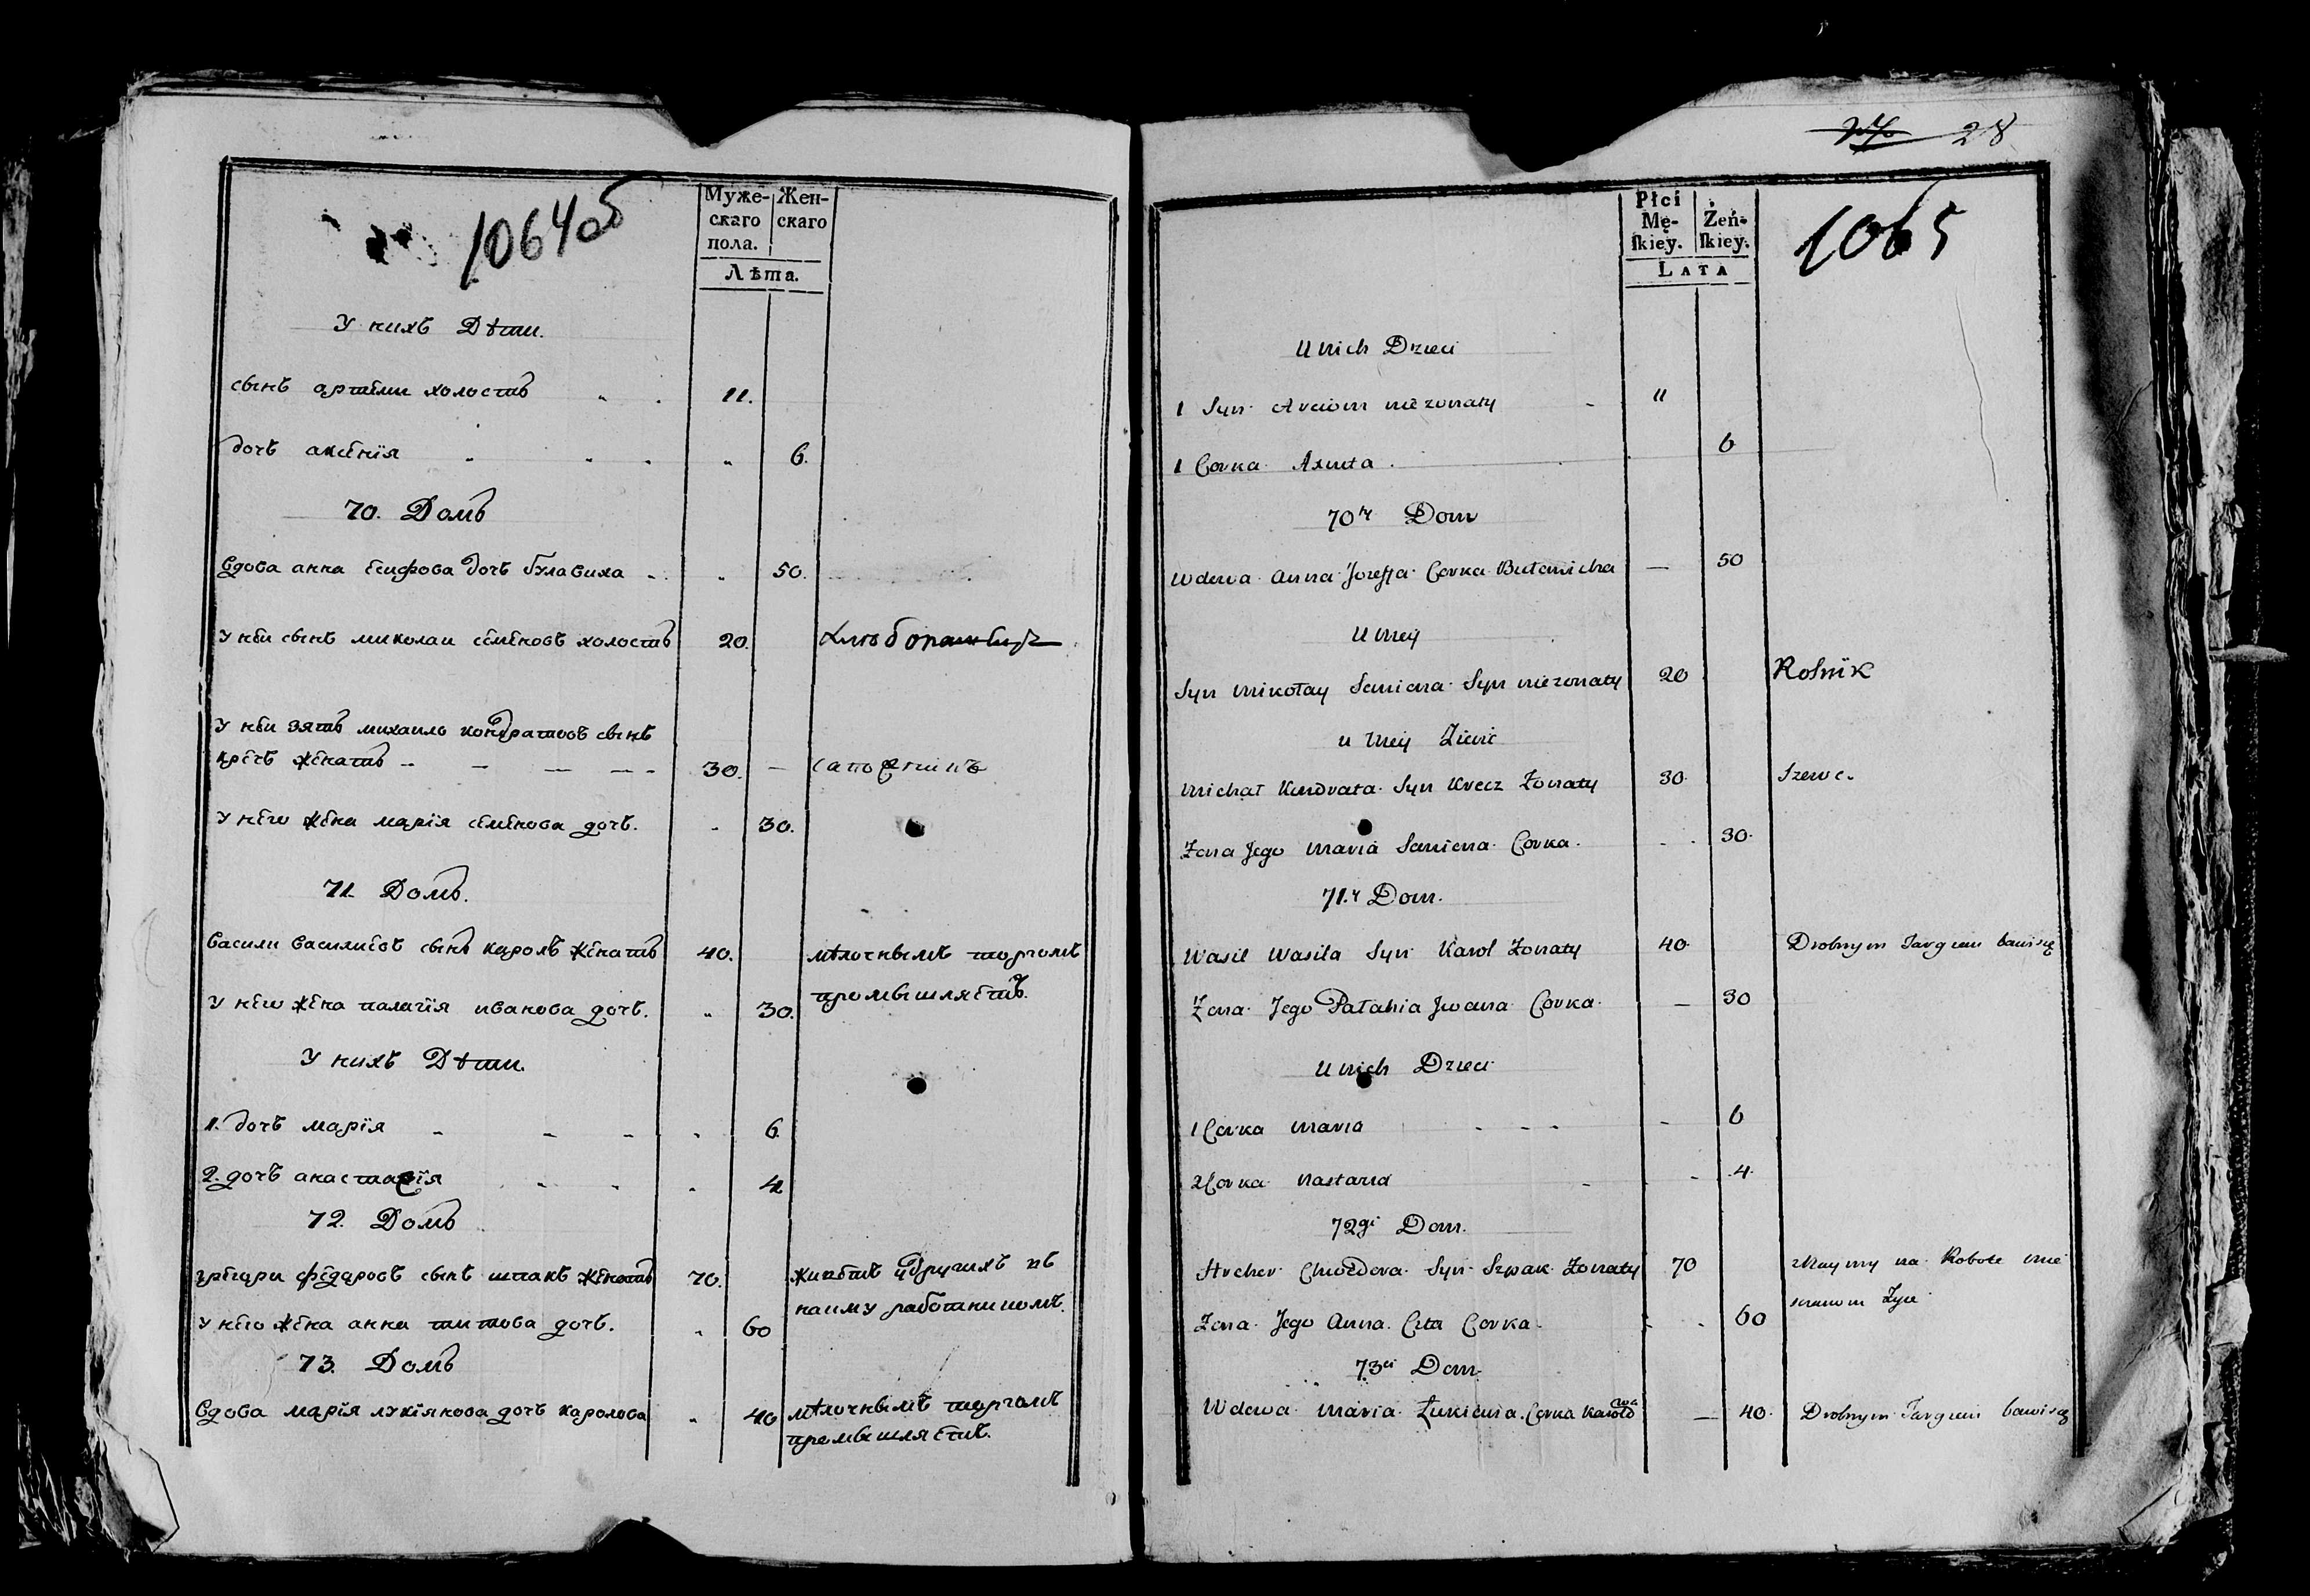 1064об
Муже-
скаго
пола.
Жен-
скаго
Лѣта.
У нихъ Дѣти.
сынъ артеми холостъ 11.
дочь аксенїя 6.
70. Домъ
вдова анна есифова дочь булавиха 50.
У неи сынъ миколаи семеновъ холостъ 20.
У неи зять михаилъ кондратовъ сынъ
кречъ женатъ 30. сапожникъ
У него жена марїя семенова дочь. 30.
71. Домъ.
Васили Василиевъ сынъ король женатъ 40. мѣлочнымъ торгомъ
У него жена палагїя иванова дочь. 30. промышляетъ.
У нихъ Дѣти.
1. дочь марїя 6.
2. дочь анастасїя 4
72. Домъ
григори федоровъ сынъ шпакъ женатъ 70. живетъ у другихъ въ
У него жена анна титова дочь. 60 наиму работникомъ.
73. Домъ
Вдова марїя лукїянова дочь королова 40 мѣлочнымъ торгомъ
промышляетъ.
27 28
Płci
Mę-
skiey.
Żeń-
skiey.
LATA
1065
U nich Dzieci
1 Syn Arciom nieżonaty 11
1 Corka Axinta 6
70y Dom
Wdowa Anna Jozefa Corka Buławicha — 50
U niey
Syn Mikołay Semiena Syn nieżonaty 20 Rolnik
U niey Zięć
Michał Kondrata Syn Krecz Żonaty 30 Szewc.
Żona Jego Maria Semiena Corka 30
71.y Dom.
Wasil Wasila Syn Karol Żonaty 40 Drobnym Targiem bawi się
Żona Jego Pałahia Jwana Corka — 30
U nich Dzieci
1 Corka Maria 6
2 Corka Nastazia 4
72gi Dom.
Hreher Chwedora Syn Szpak Żonaty 70
Żona Jego Anna Cita Corka 60
73ci Dom.
Wdowa Maria Łukiena Corka Karolowa — 40 Drobnym Targiem bawi się